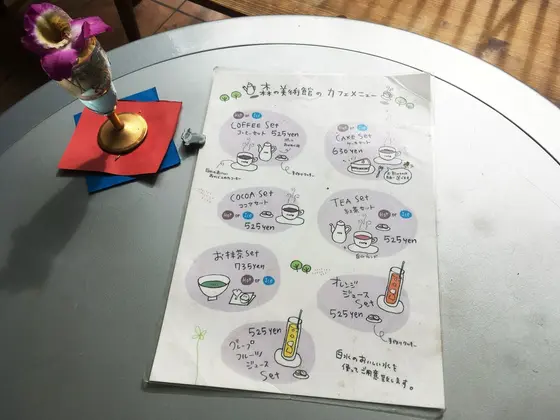 森の美術館の カフェメニュー
Hot or Ice
COFFEE Set
コーヒーセット 525yen
Hot or Ice
CAKE Set
ケーキセット
630yen
COCOA Set
ココアセット
Hot or Ice
525yen
TEA Set
紅茶セット
Hot or Ice
525yen
お抹茶 Set
735yen
Hot or Ice
オレンジ
ジュース
Set
525yen
525yen
グレープ
フルーツ
ジュース
Set
白水のおいしい水を
使ってご用意致します。